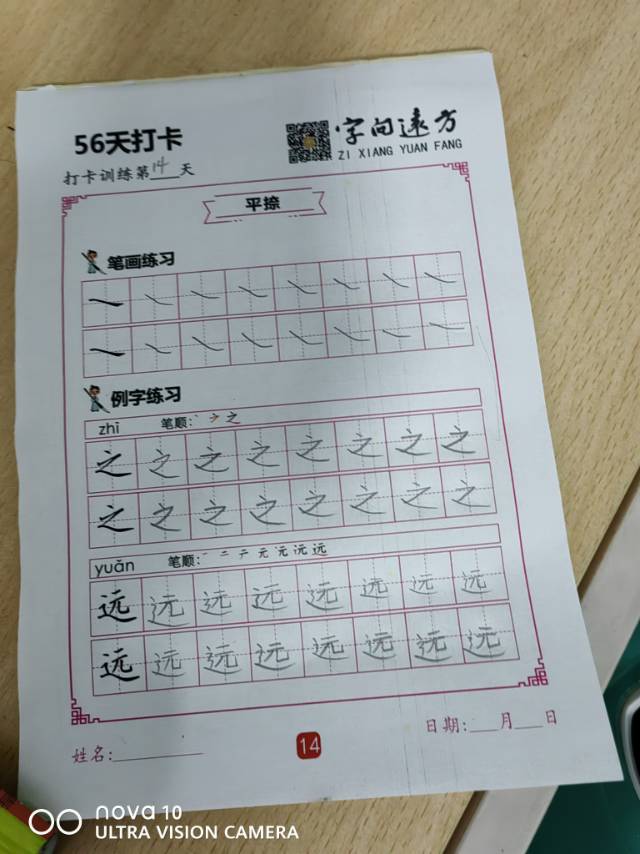 56天打卡
字向遠方
ZI XIANG YUAN FANG
打卡训练第14天
平捺
笔画练习
例字练习
zhī 笔顺: 丶 ㇇ 之
之 之 之 之 之 之 之 之
之 之 之 之 之 之 之 之
yuǎn 笔顺: 一 二 テ 元 元 沅 远
远 远 远 远 远 远 远 远
远 远 远 远 远 远 远 远
姓名:
14
日期: 月 日
nova 10
ULTRA VISION CAMERA